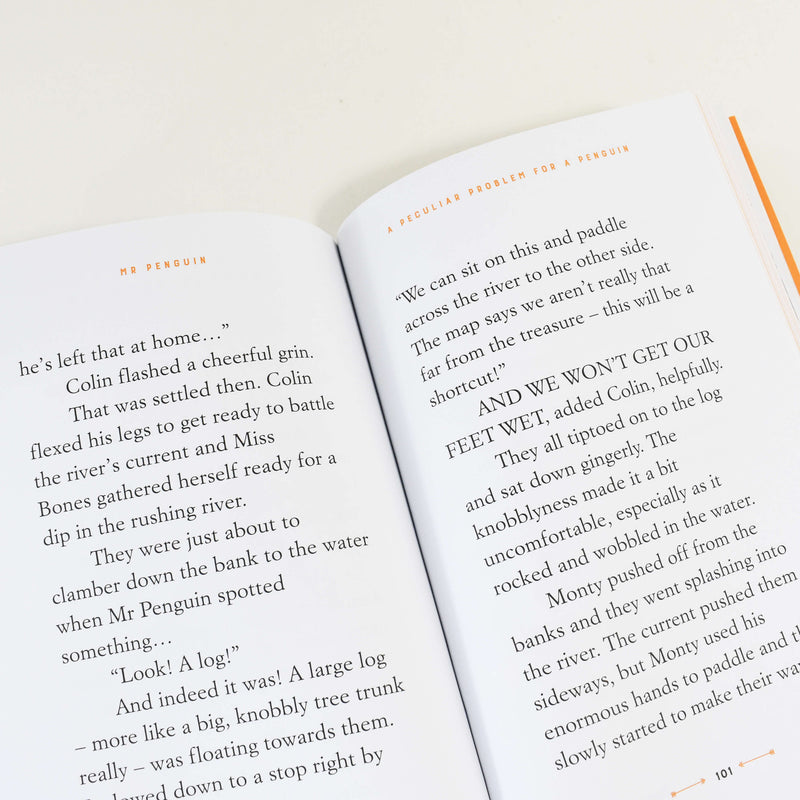 MR PENGUIN
he's left that at home…"
Colin flashed a cheerful grin.
That was settled then. Colin
flexed his legs to get ready to battle
the river's current and Miss
Bones gathered herself ready for a
dip in the rushing river.
They were just about to
clamber down the bank to the water
when Mr Penguin spotted
something…
"Look! A log!"
And indeed it was! A large log
– more like a big, knobbly tree trunk
really – was floating towards them.
down to a stop right by
A PECULIAR PROBLEM FOR A PENGUIN
"We can sit on this and paddle
across the river to the other side.
The map says we aren't really that
far from the treasure – this will be a
shortcut!"
AND WE WON'T GET OUR
FEET WET, added Colin, helpfully.
They all tiptoed on to the log
and sat down gingerly. The
knobblyness made it a bit
uncomfortable, especially as it
rocked and wobbled in the water.
Monty pushed off from the
banks and they went splashing into
the river. The current pushed them
sideways, but Monty used his
enormous hands to paddle and
slowly started to make their
101